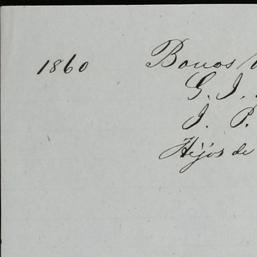 1860 Bonos
G. J.
J. P.
Hijos de